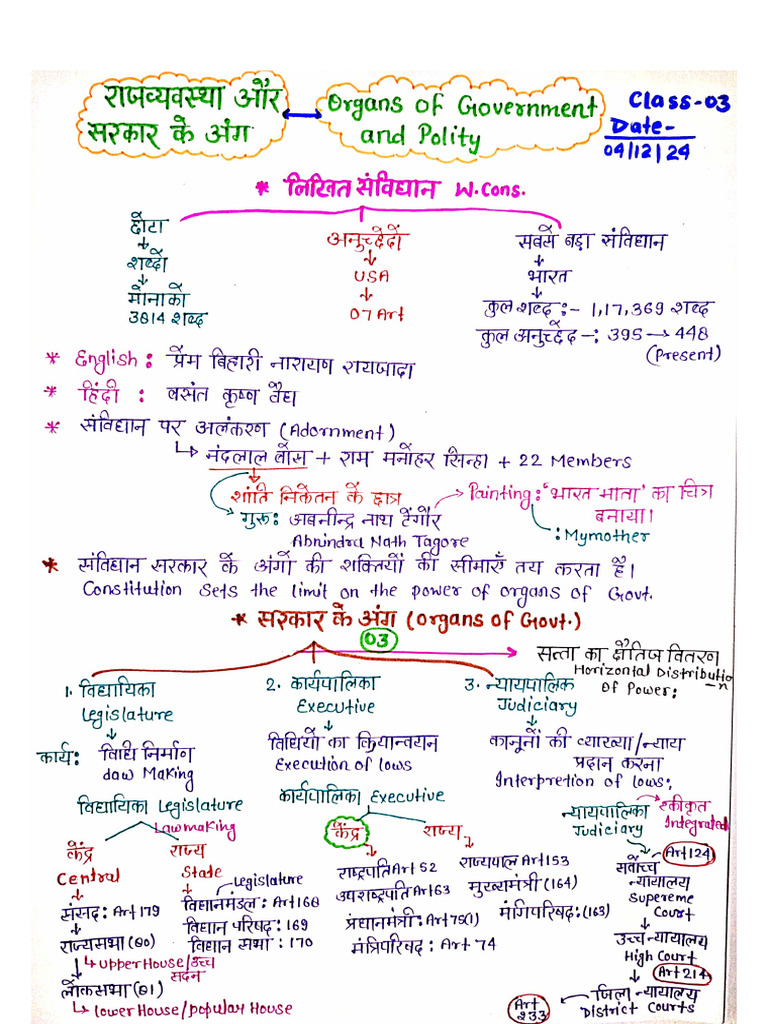 राजव्यवस्था और
सरकार के अंग
Organs of Government
and Polity
Class-03
Date-
04/12/24
* लिखित संविधान W.Cons.
छोटा
शब्दों
मोनाको
3814 शब्द
अनुच्छेदों
USA
07 Art
सबसे बड़ा संविधान
भारत
कुल शब्द :- 1,17,369 शब्द
कुल अनुच्छेद -: 395 → 448
(Present)
* English : प्रेम बिहारी नारायण रायजादा
* हिंदी : वसंत कृष्ण वैद्य
* संविधान पर अलंकरण (Adornment)
नंदलाल बोस + राम मनोहर सिन्हा + 22 Members
शांति निकेतन के छात्र
गुरु: अबनीन्द्र नाथ टैगोर
Abnindra Nath Tagore
Painting: 'भारत माता' का चित्र
बनाया।
: Mymother
* संविधान सरकार के अंगों की शक्तियों की सीमाएँ तय करता है।
Constitution Sets the limit on the power of organs of Govt.
* सरकार के अंग (Organs of Govt.)
03
सत्ता का क्षैतिज वितरण
Horizontal Distributio
-n
Of Power:
1. विधायिका
Legislature
2. कार्यपालिका
Executive
3. न्यायपालिक
Judiciary
कार्य: विधि निर्माण
Law Making
विधियों का क्रियान्वयन
Execution of lows
कानूनों की व्याख्या/न्याय
प्रदान करना
Interpretion of lows:
विधायिका Legislature
Lawmaking
कार्यपालिका Executive
न्यायपालिका
Judiciary
एकीकृत
Integrated
केंद्र
Central
संसद: Art 179
राज्यसभा (80)
upper House/उच्च
सदन
लोकसभा (81)
lower House/popular House
राज्य
State
Legislature
विधानमंडल: Art 168
विधान परिषद: 169
विधान सभा : 170
केंद्र
राष्ट्रपति Art 52
उपराष्ट्रपति Art 63
प्रधानमंत्री: Art 75(1)
मंत्रिपरिषद : Art 74
राज्य
राज्यपाल Art 153
मुख्यमंत्री (164)
मंगिपरिषद: (163)
Art 124
सर्वोच्च
न्यायालय
Supereme
Court
उच्च न्यायालय
High Court
Art 214
जिला न्यायालय
District Courts
Art
233